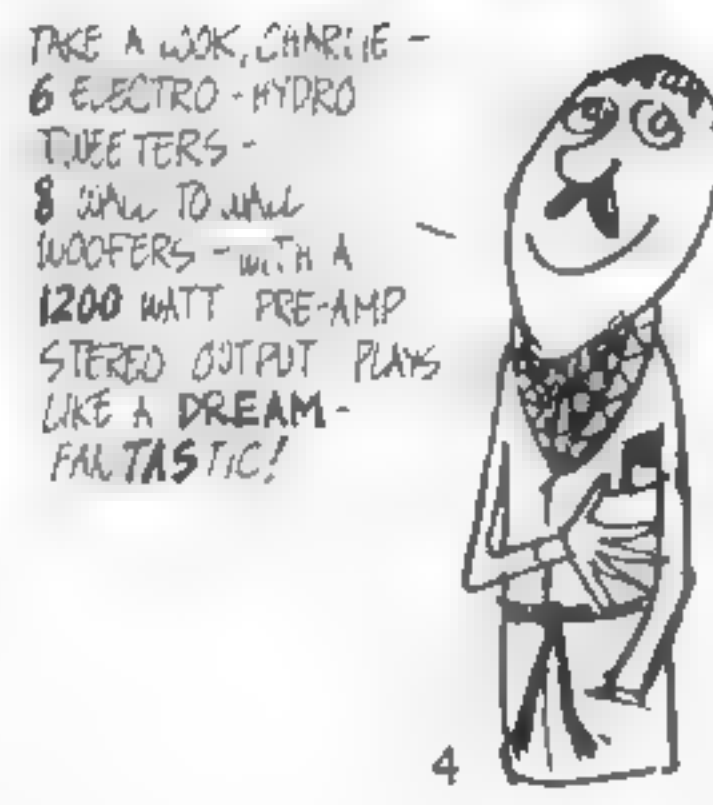 TAKE A LOOK, CHARLIE -
6 ELECTRO-HYDRO
TWEETERS -
8 WALL TO WALL
WOOFERS - WITH A
1200 WATT PRE-AMP
STEREO OUTPUT PLAYS
LIKE A DREAM -
FANTASTIC!
4